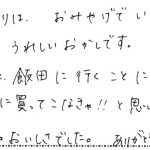 りは、おみやげでい
うれしいおかしです。
、飯田に行くことに
に買ってこなきゃ!!と思い
おいしさでした。ありがと